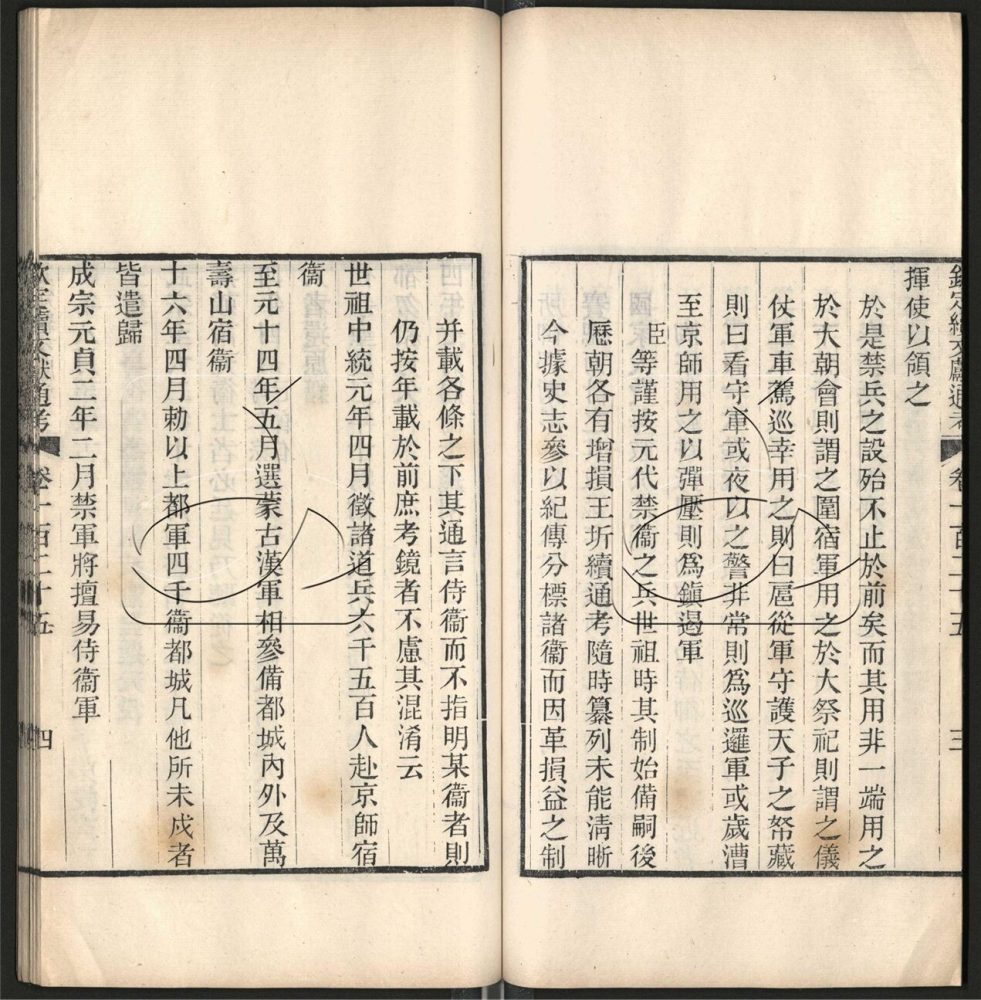 欽定續文獻通考 卷一百二十五 三
揮使以領之
於是禁兵之設殆不止於前矣而其用非一端用之
於大朝會則謂之圍宿軍用之於大祭祀則謂之儀
仗軍車駕巡幸用之則曰扈從軍守護天子之帑藏
則曰看守軍或夜以之警非常則爲巡邏軍或歲漕
至京師用之以彈壓則爲鎮遏軍
臣等謹按元代禁衞之兵世祖時其制始備嗣後
厯朝各有增損王圻續通考隨時纂列未能清晰
今據史志參以紀傳分標諸衞而因革損益之制
并載各條之下其通言侍衞而不指明某衞者則
仍按年載於前庶考鏡者不慮其混淆云
世祖中統元年四月徵諸道兵六千五百人赴京師宿
衞
至元十四年五月選蒙古漢軍相參備都城內外及萬
壽山宿衞
十六年四月勅以上都軍四千衞都城凡他所未戍者
皆遣歸
成宗元貞二年二月禁軍將擅易侍衞軍
欽定續文獻通考 卷一百二十五 四